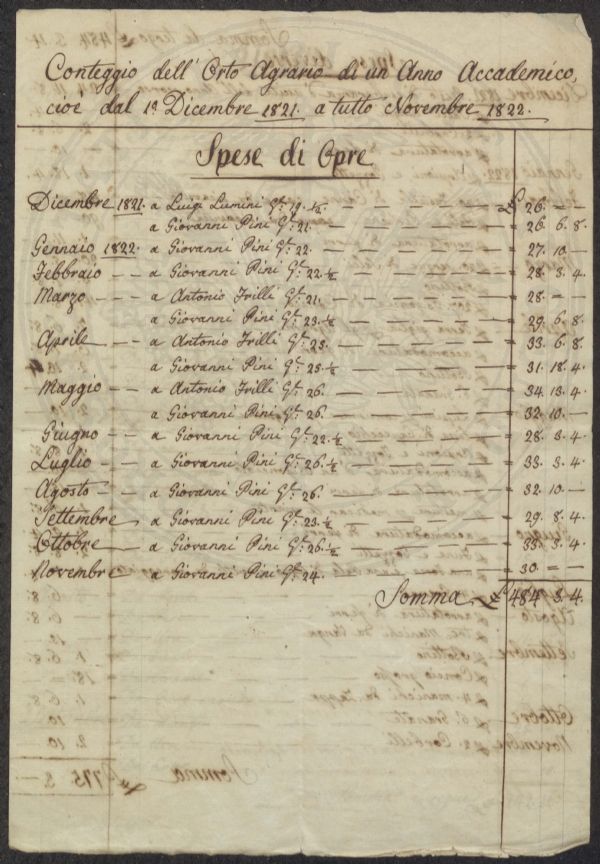 Conteggio dell' Orto Agrario di un Anno Accademico,
cioe dal 1º Dicembre 1821. a tutto Novembre 1822.
Spese di Opre
Dicembre 1821. a Luigi Lumini Gte: 19. ½. — — — £ 26. — —
a Giovanni Pini Gte: 21. — — — — = 26. 6. 8.
Gennaio 1822. a Giovanni Pini Gte: 22. — — — — = 27. 10. —
Febbraio — — a Giovanni Pini Gte: 22. ½ — — — — = 28. 3. 4.
Marzo — — a Antonio Frilli Gte: 21. — — — — = 28. = —
a Giovanni Pini Gte: 23. ½ — — — — = 29. 6. 8.
Aprile — — a Antonio Frilli Gte: 25. — — — — = 33. 6. 8.
a Giovanni Pini Gte: 25. ½ — — — — = 31. 18. 4.
Maggio — — a Antonio Frilli Gte: 26. — — — — = 34. 13. 4.
a Giovanni Pini Gte: 26. — — — — = 32. 10. —
Giugno — — a Giovanni Pini Gte: 22. ½ — — — — = 28. 3. 4.
Luglio — — a Giovanni Pini Gte: 26. ½ — — — — = 33. 3. 4.
Agosto — — a Giovanni Pini Gte: 26. — — — — = 32. 10. —
Settembre — a Giovanni Pini Gte: 23. ½ — — — — = 29. 8. 4.
Ottobre — a Giovanni Pini Gte: 26. ½ — — — — = 33. 3. 4.
Novembre — a Giovanni Pini Gte: 24. — — — — = 30. = —
Somma £ 484. 3. 4.